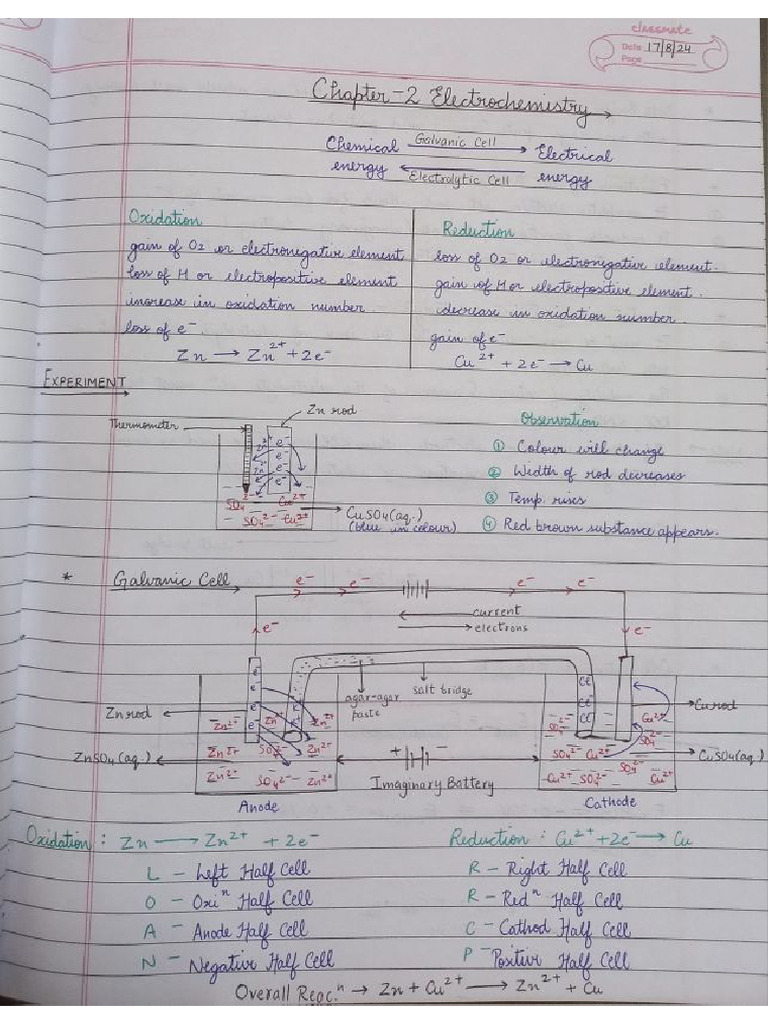 classmate
Date 17/8/24
Page
Chapter-2 Electrochemistry
Chemical energy Galvanic Cell Electrical energy
Electrolytic Cell
Oxidation
gain of O2 or electronegative element
loss of H or electropositive element
increase in oxidation number
loss of e⁻.
Zn ⟶ Zn²⁺ + 2e⁻
Reduction
loss of O2 or electronegative element.
gain of H or electropositive element.
decrease in oxidation number.
gain of e⁻
Cu²⁺ + 2e⁻ ⟶ Cu
EXPERIMENT
Zn rod
Thermometer
e⁻
e⁻
e⁻
e⁻
SO₄²⁻ Cu²⁺
SO₄²⁻ Cu²⁺
CuSO4(aq.)
(blue in colour)
Observation
① Colour will change
② Width of rod decreases
③ Temp. rises
④ Red brown substance appears.
* Galvanic Cell
e⁻ e⁻ e⁻ e⁻
current
electrons
e⁻ e⁻
agar-agar paste
salt bridge
Zn rod
Cu rod
ZnSO4(aq.)
CuSO4(aq.)
Zn²⁺ SO₄²⁻ Zn²⁺
Zn²⁺ SO₄²⁻ Zn²⁺
SO₄²⁻ Cu²⁺ SO₄²⁻
Cu²⁺ SO₄²⁻ Cu²⁺
+ -
Imaginary Battery
Anode
Cathode
Oxidation : Zn ⟶ Zn²⁺ + 2e⁻
Reduction : Cu²⁺ + 2e⁻ ⟶ Cu
L - Left Half Cell
R - Right Half Cell
O - Oxiⁿ Half Cell
R - Redⁿ Half Cell
A - Anode Half Cell
C - Cathod Half Cell
N - Negative Half Cell
P - Positive Half Cell
Overall Reac.ⁿ → Zn + Cu²⁺ ⟶ Zn²⁺ + Cu